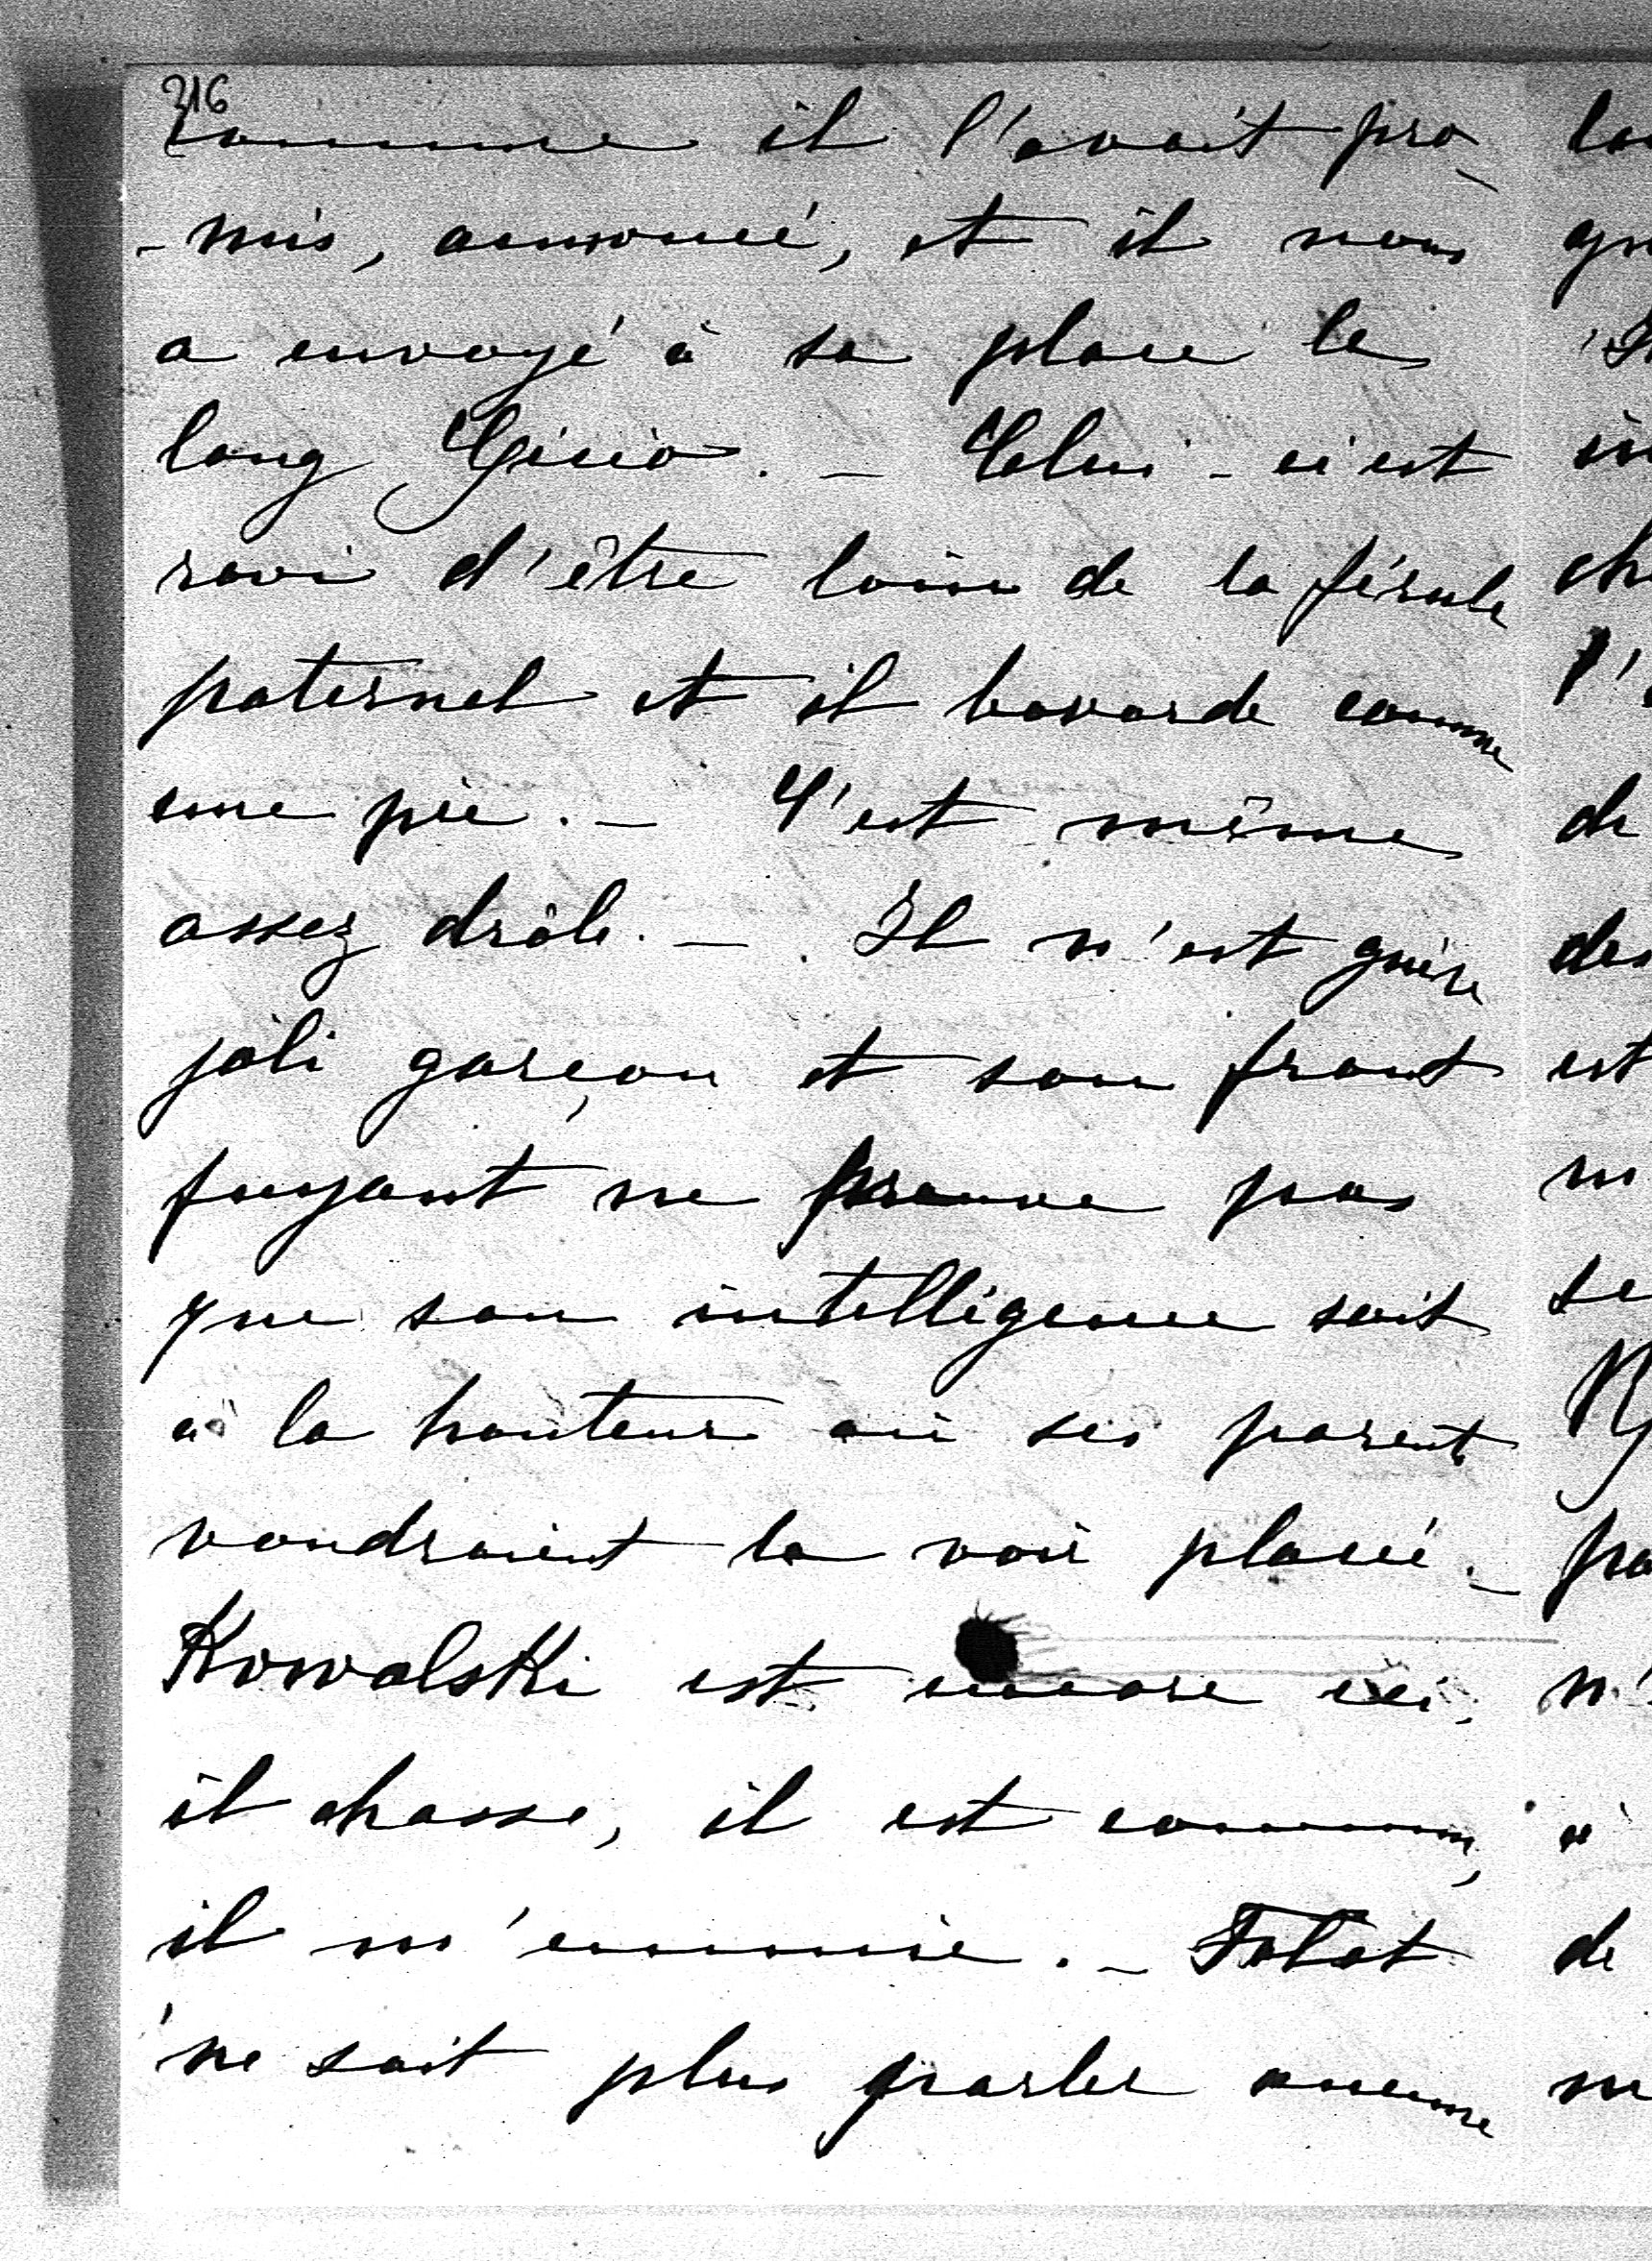 216
comme il l'avait pro-
-mis, annoncé, et il nous
a envoyé à sa place le
long Gicio. - Celui-ci est
ravi d'être loin de la férule
paternel et il bavarde comme
une pie. - C'est même
assez drôle. - Il n'est guère
joli garçon et son front
fuyant ne prouve pas
que son intelligence soit
à la hauteur où ses parents
voudraient la voir placée. -
Kowalski est encore ici,
il chasse, il est commun,
il m'ennuie. - Totot
ne sait plus parler aucune